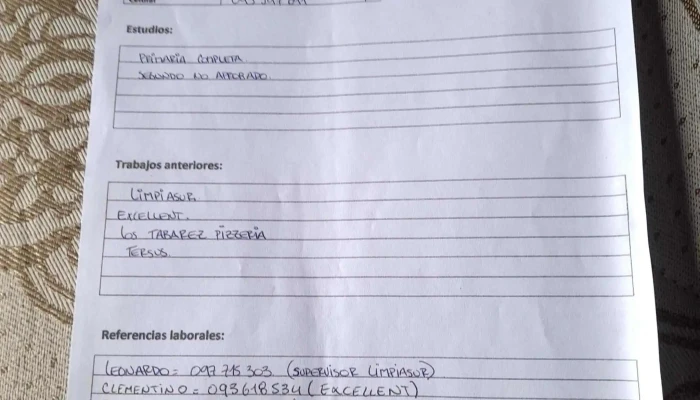 Estudios:
PRIMARIA COMPLETA
SEGUNDO NO APROBADO.
Trabajos anteriores:
LIMPIASUR.
EXCELLENT.
LOS TABAREZ PIZZERIA
TERSUS.
Referencias laborales:
LEONARDO = 097 715 303 (SUPERVISOR LIMPIASUR)
CLEMENTINO = 093618534 (EXCELLENT)